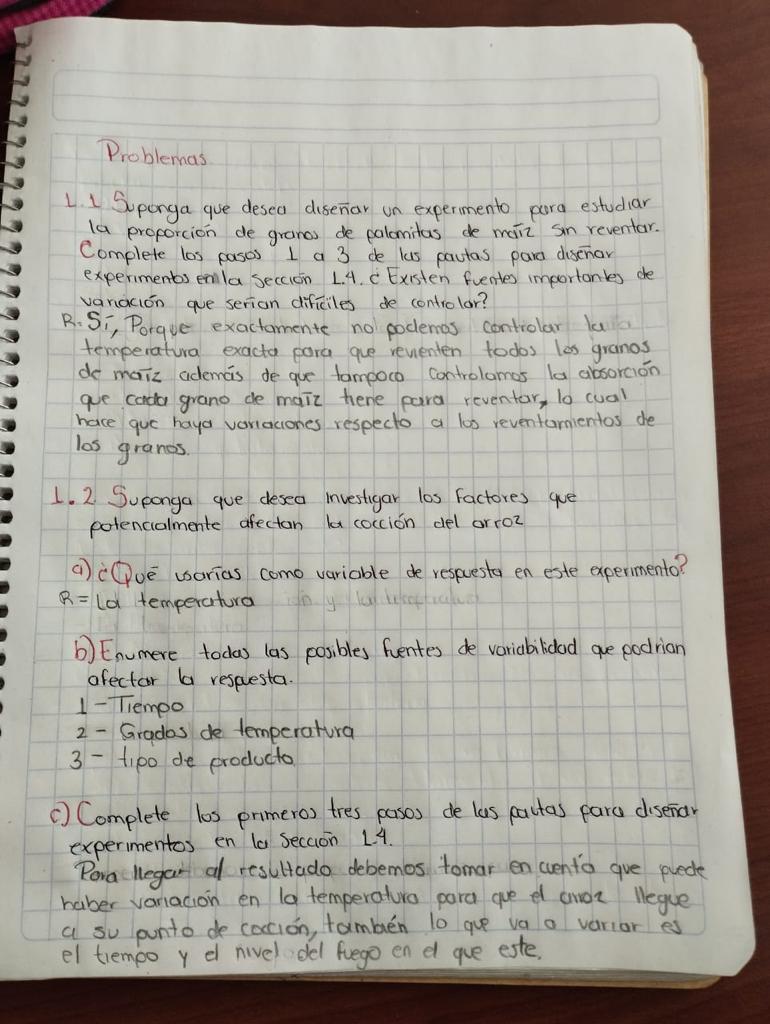 Problemas
1.1 Suponga que desea diseñar un experimento para estudiar
la proporción de granos de palomitas de maíz sin reventar.
Complete los pasos 1 a 3 de las pautas para diseñar
experimentos en la sección 1.4. ¿Existen fuentes importantes de
variación que serían difíciles de controlar?
R= Sí, Porque exactamente no podemos controlar la
temperatura exacta para que revienten todos los granos
de maíz además de que tampoco controlamos la absorción
que cada grano de maíz tiene para reventar, lo cual
hace que haya variaciones respecto a los reventamientos de
los granos.
1.2 Suponga que desea investigar los factores que
potencialmente afectan la cocción del arroz
a) ¿Qué usarías como variable de respuesta en este experimento?
R= La temperatura
b) Enumere todas las posibles fuentes de variabilidad que podrían
afectar la respuesta.
1 - Tiempo
2 - Grados de temperatura
3 - tipo de producto
c) Complete los primeros tres pasos de las pautas para diseñar
experimentos en la sección 1.4.
Para llegar al resultado debemos tomar en cuenta que puede
haber variación en la temperatura para que el arroz llegue
a su punto de cocción, también lo que va a variar es
el tiempo y el nivel del fuego en el que este.